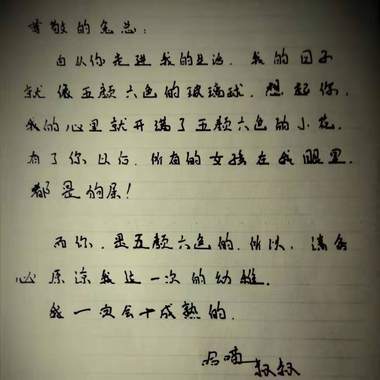 尊敬的兔总：
自从你走进我的生活，我的日子
就像五颜六色的玻璃球，想起你，
我的心里就开满了五颜六色的小花，
有了你以后，所有的女孩在我眼里，
都是狗屎！
而你，是五颜六色的，所以，请务
必原谅我这一次的幼稚。
我一定会十成熟的。
叔叔